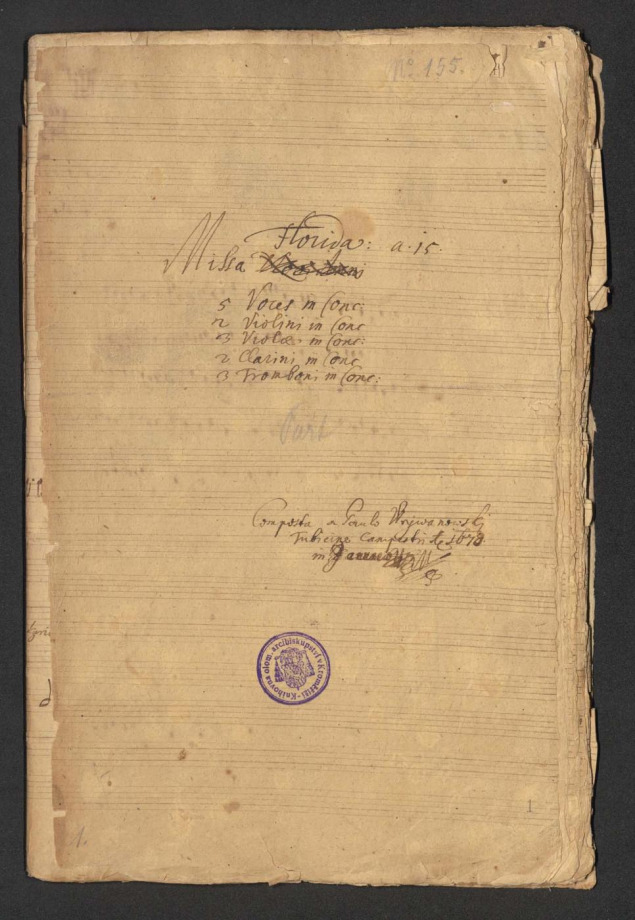 No 155.
Florida: a. 15.
Missa
5 Voces in Conc:
2 Violini in Conc
3 Violæ in Conc:
2 Clarini in Conc
3 Tromboni in Conc:
Part
Composta a Paulo Wejwanowskij
Tubicine Campestri Ao 1678
in
Knihovna olom. arcibiskupství v Kroměříži
1
1.